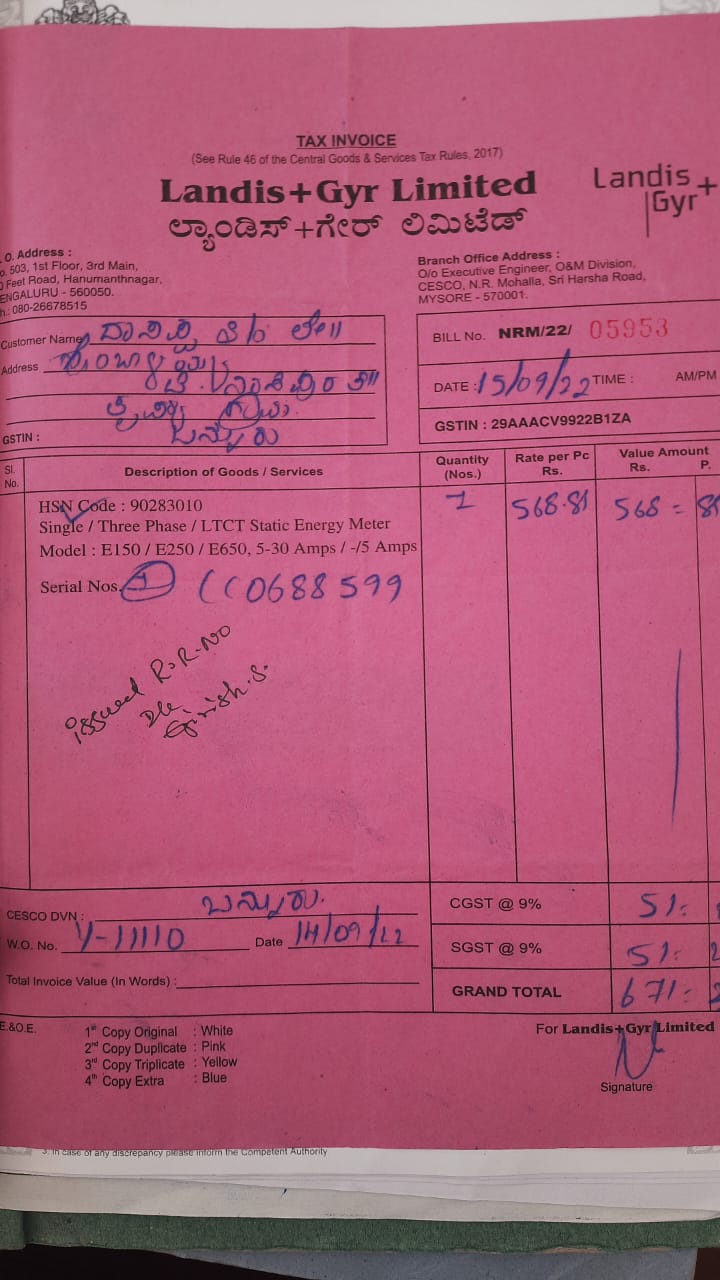 TAX INVOICE
(See Rule 46 of the Central Goods & Services Tax Rules, 2017)
Landis+Gyr Limited
Landis+
Gyr
ಲ್ಯಾಂಡಿಸ್+ಗೇರ್ ಲಿಮಿಟೆಡ್
O. Address :
503, 1st Floor, 3rd Main,
Feet Road, Hanumanthnagar,
ENGALURU - 560050.
h.: 080-26678515
Branch Office Address :
O/o Executive Engineer, O&M Division,
CESCO, N.R. Mohalla, Sri Harsha Road,
MYSORE - 570001.
Customer Name
Address
GSTIN :
ಬನ್ನೂರು
BILL No. NRM/22/ 05953
DATE : 15/09/22 TIME : AM/PM
GSTIN : 29AAACV9922B1ZA
Sl. No.
Description of Goods / Services
Quantity (Nos.)
Rate per Pc Rs.
Value Amount Rs. P.
HSN Code : 90283010
Single / Three Phase / LTCT Static Energy Meter
Model : E150 / E250 / E650, 5-30 Amps / -/5 Amps
1 568.81 568 = 81
Serial Nos. CC0688599
issued R.R.NO
Girish.S.
CESCO DVN : ಬನ್ನೂರು.
W.O. No. Y-11110 Date 14/09/22
Total Invoice Value (In Words) :
CGST @ 9% 51:
SGST @ 9% 51:
GRAND TOTAL 671:
E.&O.E.
1st Copy Original : White
2nd Copy Duplicate : Pink
3rd Copy Triplicate : Yellow
4th Copy Extra : Blue
For Landis+Gyr Limited
Signature
3. In case of any discrepancy please inform the Competent Authority